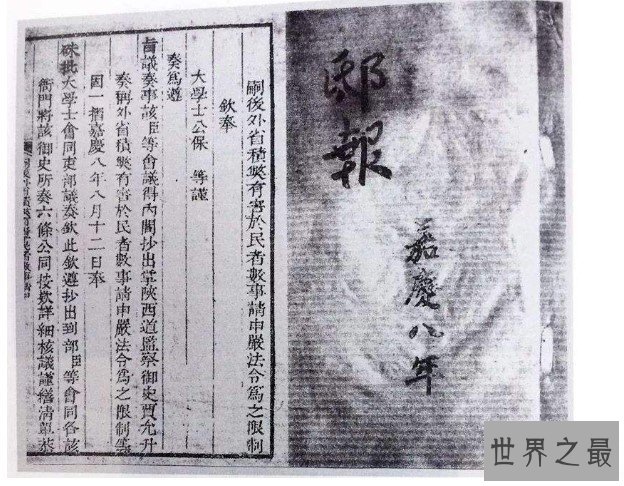 邸報
嘉慶八年
嗣後外省積獘有害於民者數事請申嚴法令爲之限制
欽奉
大學士公保 等謹
奏爲遵
旨議奏事該臣等會議得內閣抄出掌陝西道監察御史賈允升
奏稱外省積獘有害於民者數事請申嚴法令爲之限制等
因一摺嘉慶八年八月十二日奉
硃批大學士會同吏部議奏欽此欽遵抄出到部臣等會同各該
衙門將該御史所奏六條公同按欵詳細核議謹繕清單恭
世界之最